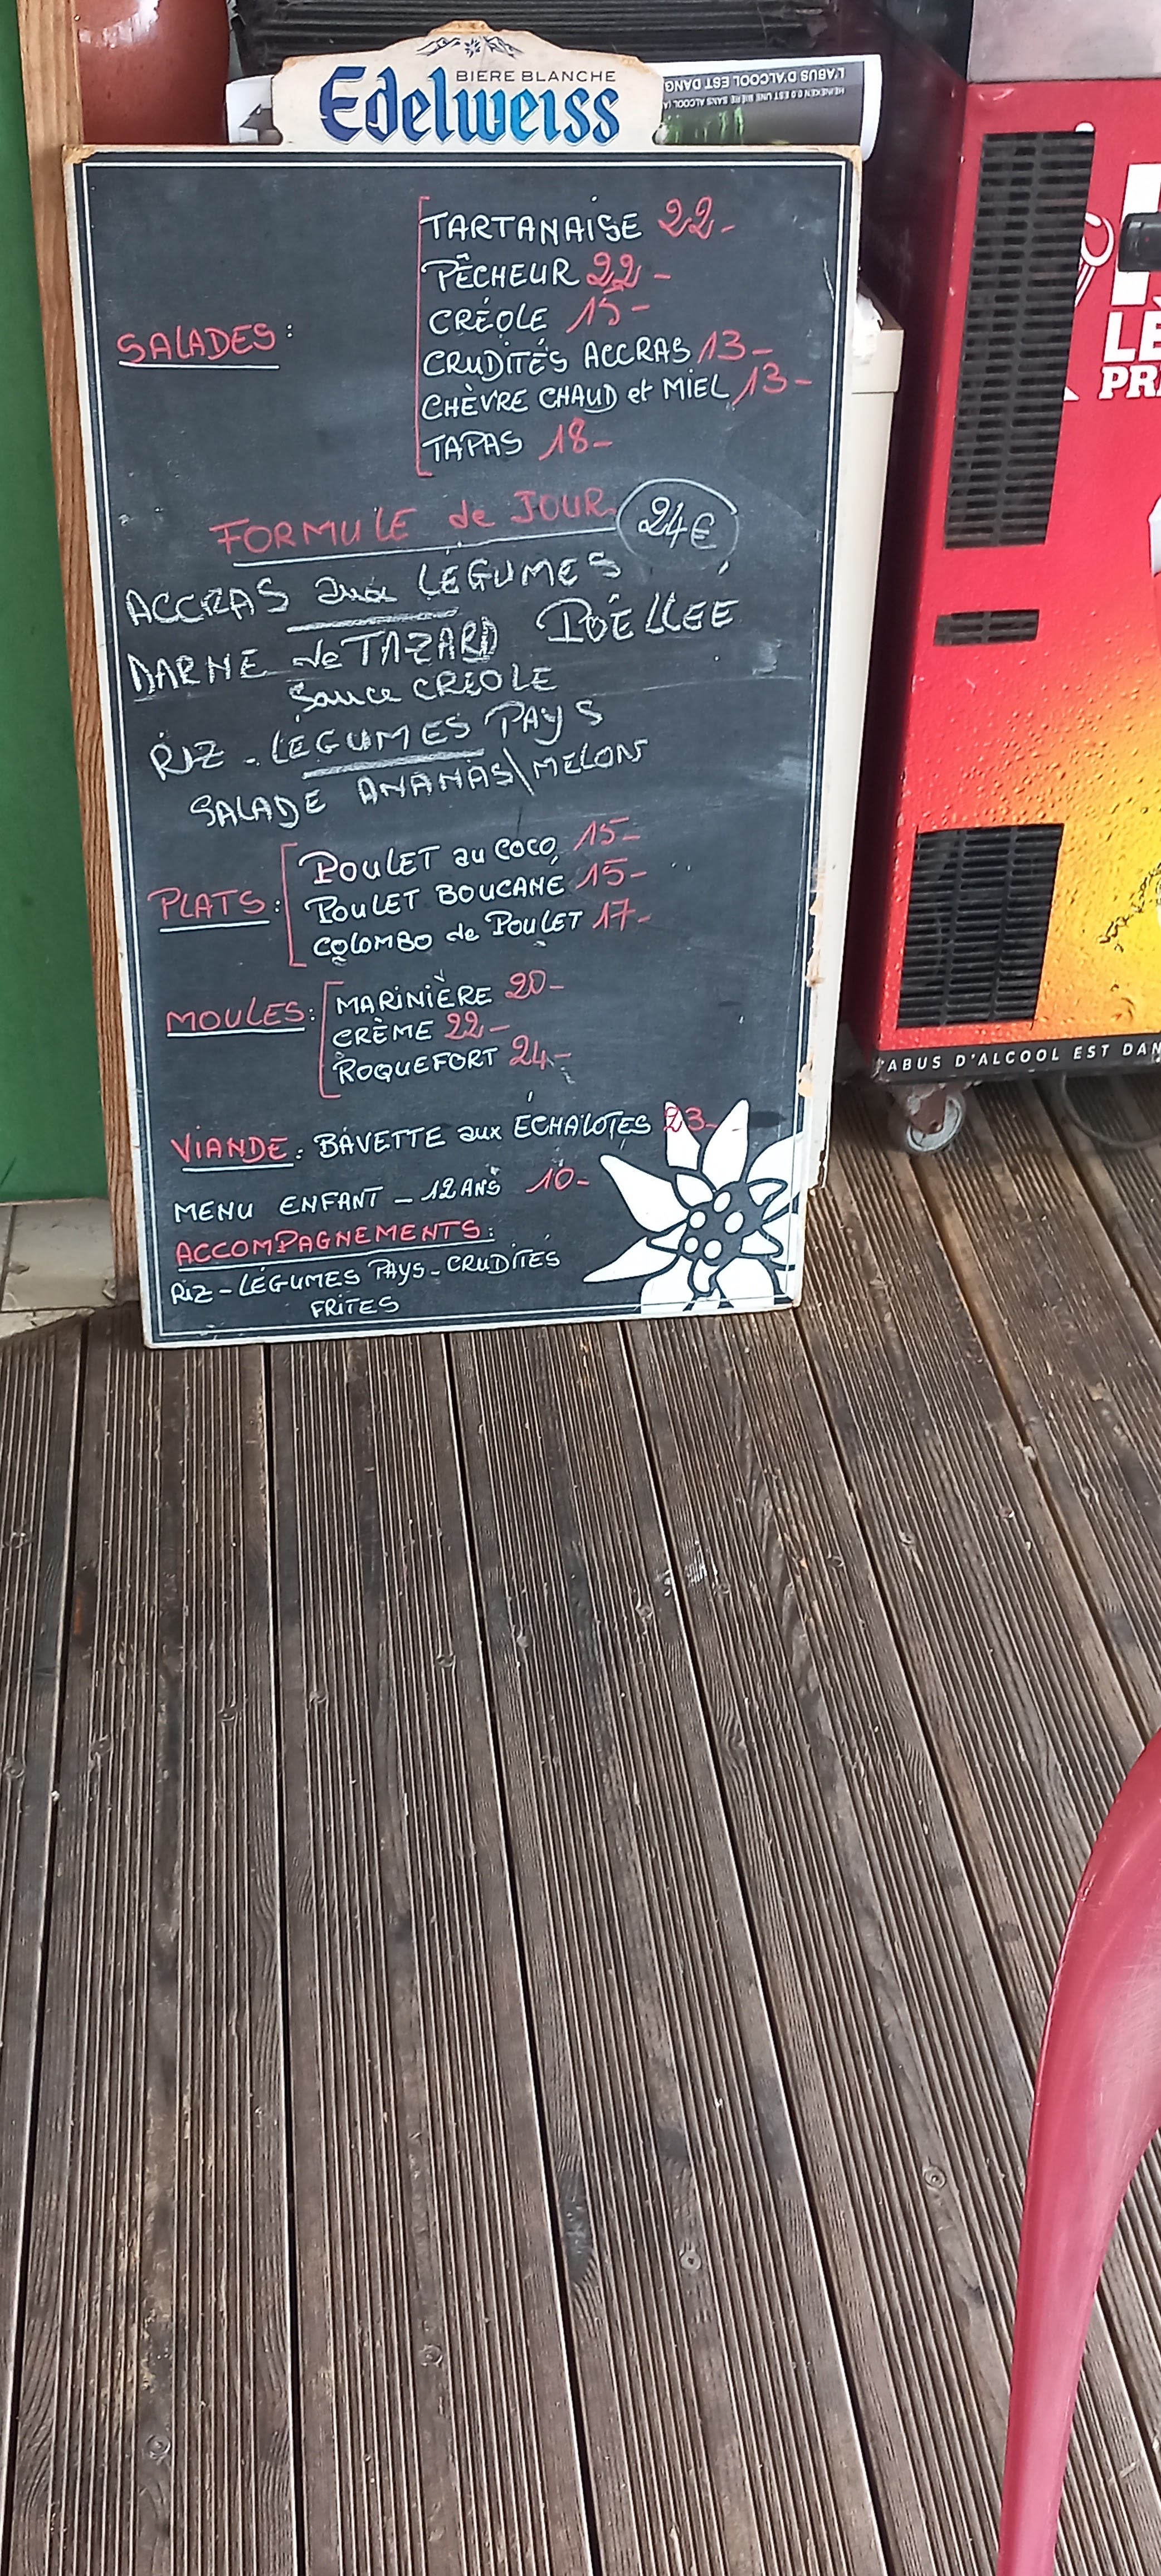 BIERE BLANCHE
Edelweiss
L'ABUS D'ALCOOL EST DANG
HEINEKEN 0.0 EST UNE BIÈRE SANS ALCOOL
TARTANAISE 22-
PÊCHEUR 22-
CRÉOLE 15-
SALADES:
CRUDITÉS ACCRAS 13-
CHÈVRE CHAUD et MIEL 13-
TAPAS 18-
FORMULE de JOUR 24€
ACCRAS aux LÉGUMES
DARNE de TAZARD POÊLLÉE
Sauce CREOLE
RIZ - LÉGUMES PAYS
SALADE ANANAS\MELON
POULET au COCO 15-
PLATS: POULET BOUCANÉ 15-
COLOMBO de POULET 17-
MOULES: MARINIÈRE 20-
CRÈME 22-
ROQUEFORT 24-
VIANDE: BAVETTE aux ÉCHALOTES 23-
MENU ENFANT - 12 ANS 10-
ACCOMPAGNEMENTS:
RIZ - LÉGUMES PAYS - CRUDITÉS
FRITES
LÉ
PR
'ABUS D'ALCOOL EST DAN